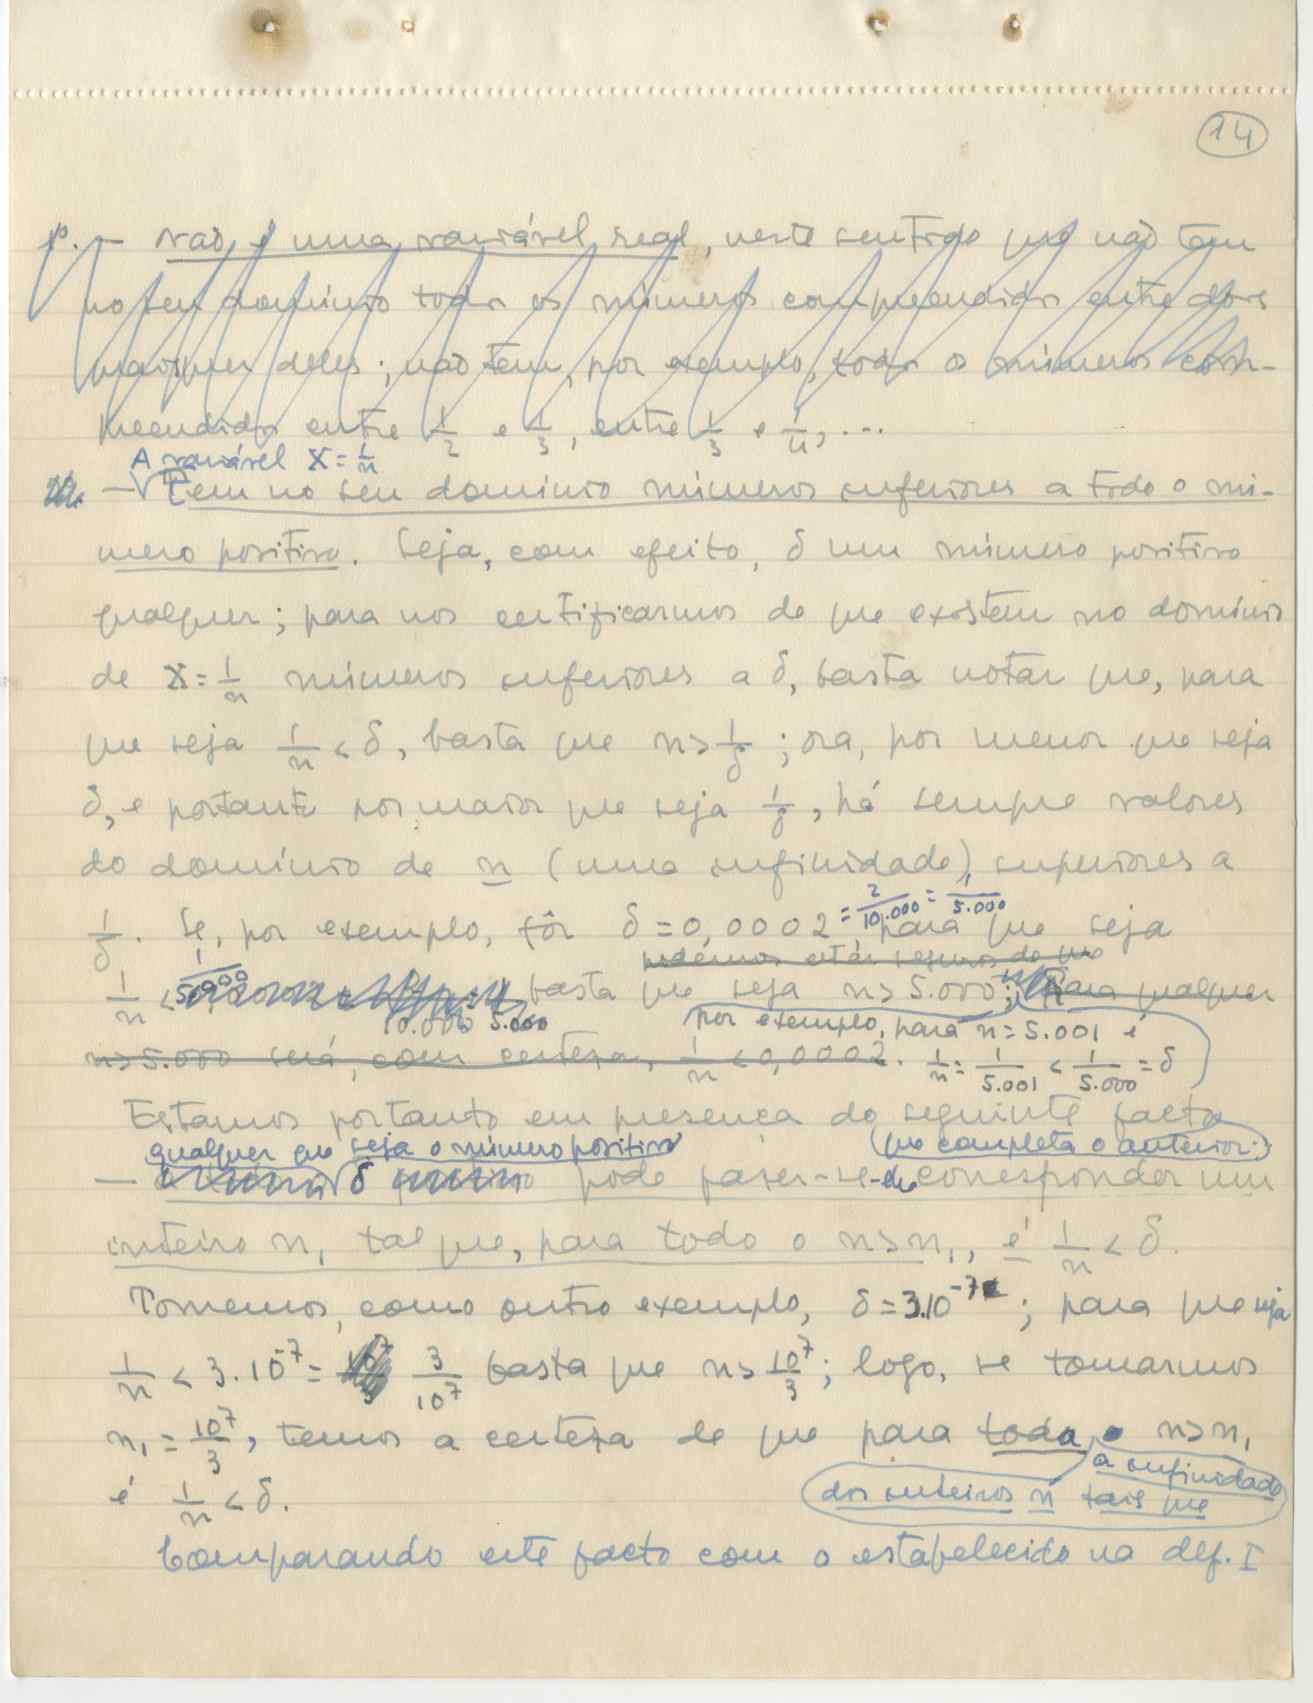 14
p. — não é uma variável real, neste sentido que não tem
no seu domínio todos os números compreendidos entre dois
quaisquer deles; não tem, por exemplo, todos os números com-
preendidos entre 1/2 e 1/3, entre 1/3 e 1/4, ...
A variável X = 1/n
— Tem no seu domínio números inferiores a todo o nú-
mero positivo. Seja, com efeito, δ um número positivo
qualquer; para nos certificarmos de que existem no domínio
de X = 1/n números inferiores a δ, basta notar que, para
que seja 1/n < δ, basta que n > 1/δ; ora, por menor que seja
δ, e portanto por maior que seja 1/δ, há sempre valores
do domínio de n (uma infinidade), superiores a
= 2/10.000 = 1/5.000
1/δ. Se, por exemplo, fôr δ = 0,0002 para que seja
podemos estar seguros de que
1/n < 1/5.000 basta que seja n > 5.000; para qualquer
10.000 5.000
por exemplo, para n = 5.001 é
n > 5.000 será, com certeza, 1/n < 0,0002. 1/n = 1/5.001 < 1/5.000 = δ
Estamos portanto em presença do seguinte facto
qualquer que seja o número positivo (que completa o anterior:)
— δ pode fazer-se-lhe corresponder um
inteiro n₁ tal que, para todo o n > n₁, é 1/n < δ.
Tomemos, como outro exemplo, δ = 3.10⁻⁷; para que seja
1/n < 3.10⁻⁷ = 3/10⁷ basta que n > 10⁷/3; logo, se tomarmos
n₁ = 10⁷/3, temos a certeza de que para toda n > n₁
a infinidade
dos inteiros n tais que
é 1/n < δ.
Comparando este facto com o estabelecido na def. I